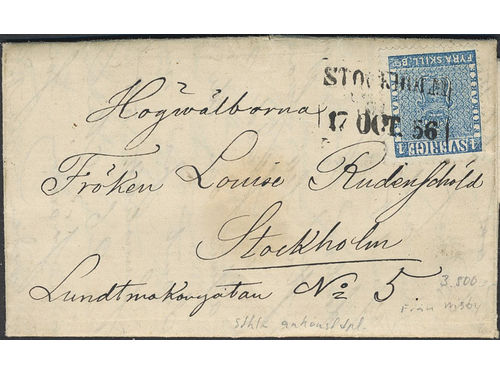 FYRA SKILL. Bco
SVERIGE
STOCKHOLM
17 OCT. 56
Högwälborna
Fröken Louise Rudenschöld
Stockholm
Lundtmakaregatan No 5.
3.500
Sthlm ankomststpl.